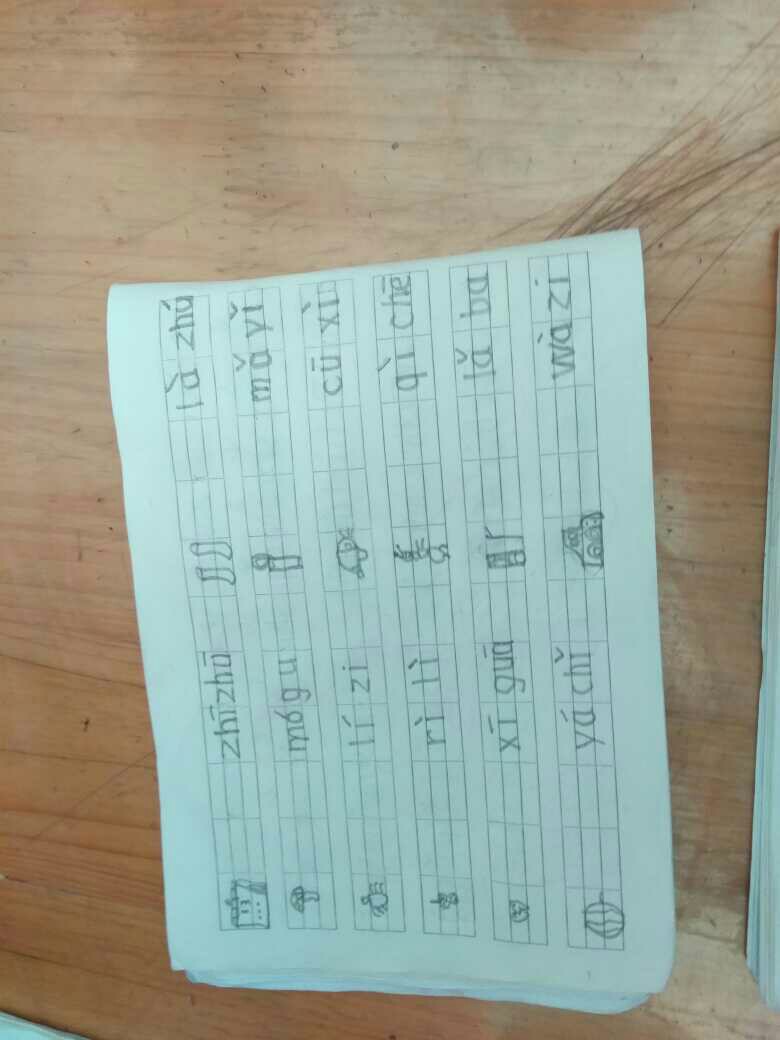 zhīzhū là zhú
mógu mǎ yǐ
lí zi cū xì
rì lì qì chē
xī guā lǎ ba
yá chǐ wà zi